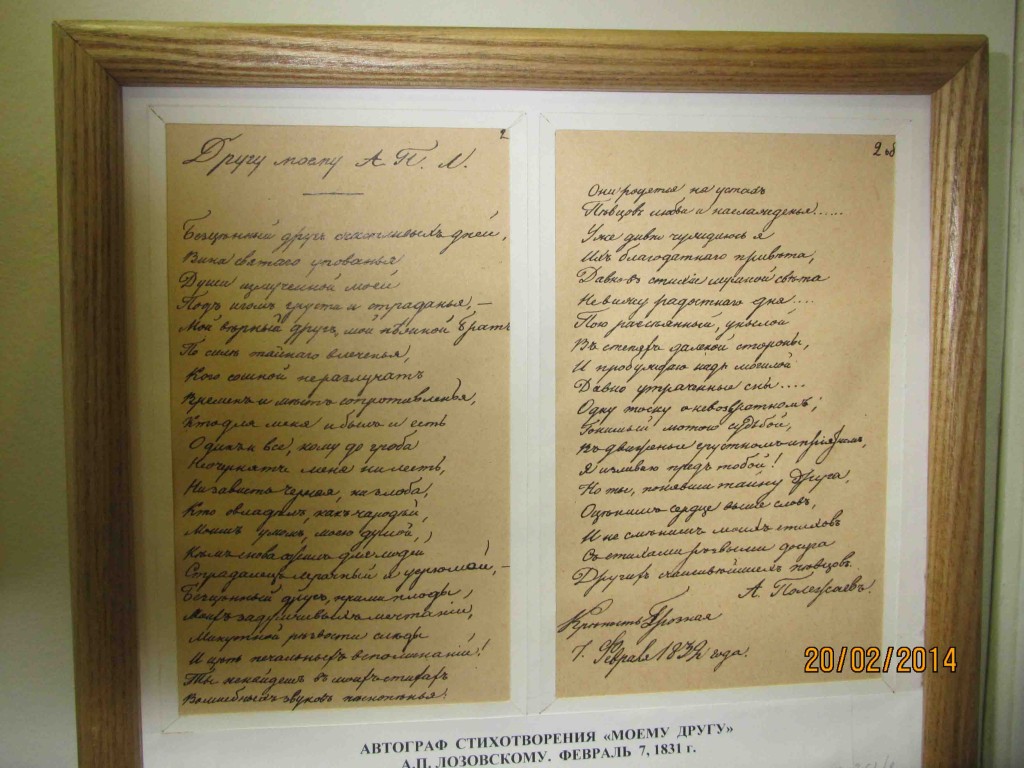 2
Другу моему А. П. Л.
Безцѣнный другъ счастливыхъ дней,
Вина святаго упованья
Души измученной моей
Подъ игомъ грусти и страданья, —
Мой вѣрный другъ, мой нѣжной братъ
По силѣ тайнаго влеченья,
Кого со мной не разлучатъ
Временъ и мѣстъ сопротивленья,
Кто для меня и былъ и есть
Одинъ и все, кому до гроба
Не очернятъ меня ни лесть,
Ни зависть черная, ни злоба,
Кто овладѣлъ, какъ чародѣй,
Моимъ умомъ, моею думой,
Кѣмъ снова ожилъ для людей
Страдалецъ мрачный и угрюмой, —
Безцѣнный другъ, прими плоды
Моихъ задумчивыхъ мечтаній,
Минутной рѣзвости слѣды
И цѣпь печальныхъ вспоминаній!
Ты не найдешь въ моихъ стихахъ
Волшебныхъ звуковъ пѣснопѣнья:
2 об
Они родятся на устахъ
Пѣвцовъ любви и наслажденья.....
Уже давно чуждаюсь я
Ихъ благодатнаго привѣта,
Давно въ стихіи шумной свѣта
Не вижу радостнаго дня....
Пою разсѣянный, унылой
Въ степяхъ далекой стороны,
И пробуждаю надъ могилой
Давно утраченные сны....
Одну тоску о невозвратномъ,
Гонимый лютою судьбой,
Въ движеньи грустномъ и пріятномъ,
Я изливаю предъ тобой!
Но ты, понявши тайну друга,
Оцѣнишь сердце выше словъ,
И не смѣнишь моихъ стиховъ
Съ стихами рѣзвыми досуга
Другихъ счастливѣйшихъ пѣвцовъ.
А. Полежаевъ.
Крѣпость Грозная
7. Февраля 1832 года.
20/02/2014
АВТОГРАФ СТИХОТВОРЕНИЯ «МОЕМУ ДРУГУ»
А.П. ЛОЗОВСКОМУ. ФЕВРАЛЬ 7, 1831 г.